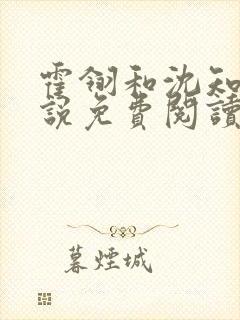 霍翎和沈知
說免費閱讀
暮煙城